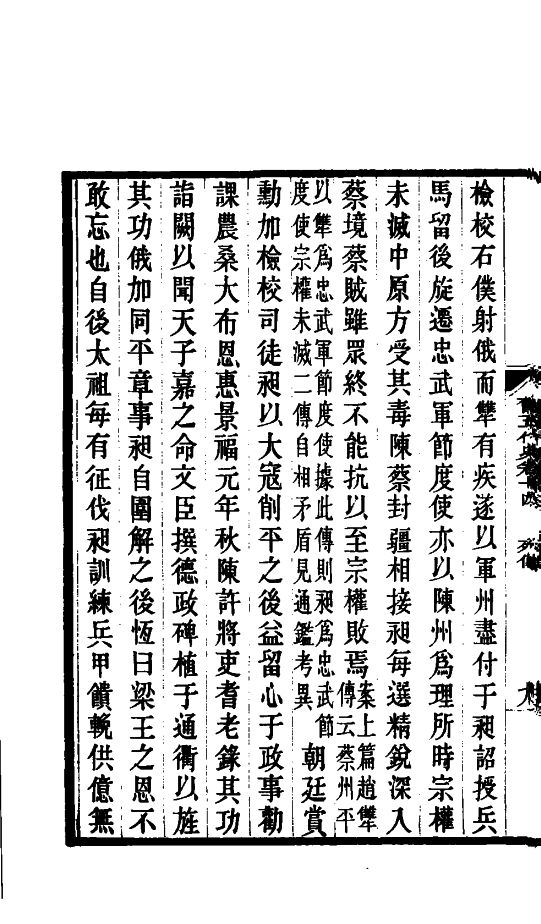 檢校右僕射俄而犨有疾遂以軍州盡付于昶詔授兵
馬留後旋遷忠武軍節度使亦以陳州爲理所時宗權
未滅中原方受其毒陳蔡封疆相接昶每選精銳深入
蔡境蔡賊雖眾終不能抗以至宗權敗焉案上篇趙犨
傳云蔡州平
以犨爲忠武軍節度使據此傳則昶爲忠武節
度使宗權未滅二傳自相矛盾見通鑑考異
朝廷賞
勳加檢校司徒昶以大寇削平之後益留心于政事勸
課農桑大布恩惠景福元年秋陳許將吏耆老錄其功
詣闕以聞天子嘉之命文臣撰德政碑植于通衢以旌
其功俄加同平章事昶自圍解之後恆曰梁王之恩不
敢忘也自後太祖每有征伐昶訓練兵甲饋輓供億無